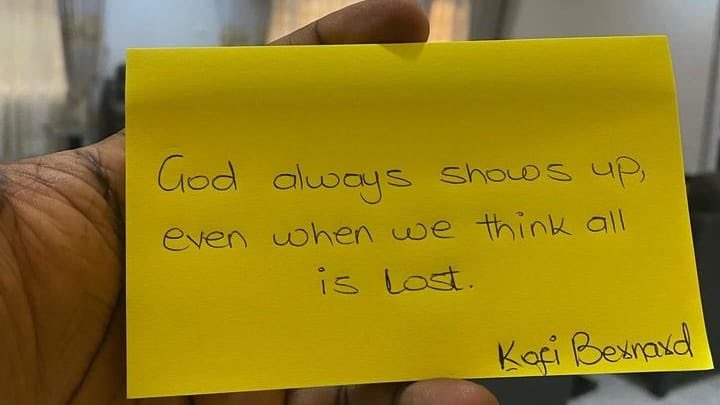 God always shows up,
even when we think all
is Lost.
Kofi Bernard